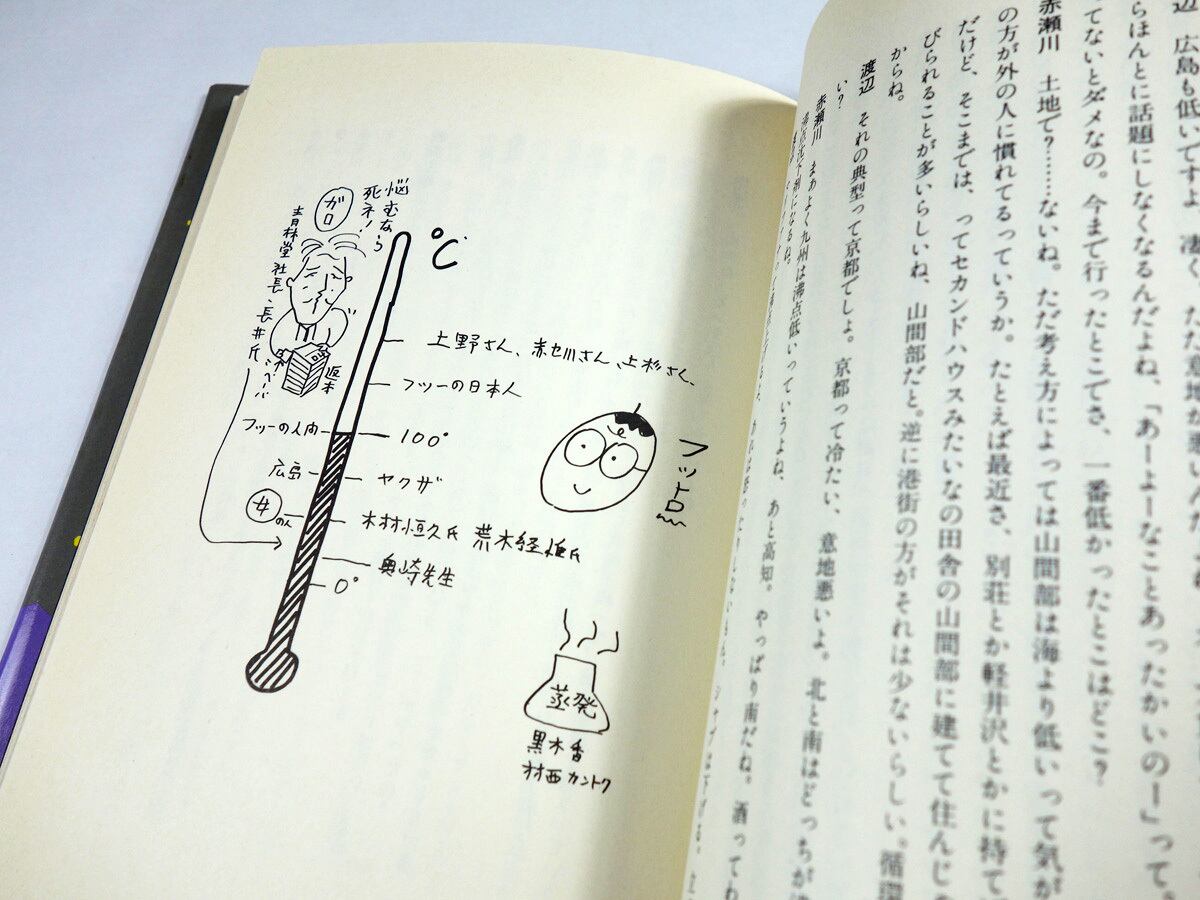 ℃
悩むなら
死ネ!
ガロ
青林堂社長、長井氏
返本
上野さん、赤セ川さん、上杉さん、
フツーの日本人
フツーの人肉
100°
広島
ヤクザ
女の人
木林恒久氏 荒木経惟氏
奥崎先生
0°
フットロ
蒸発
黒木香
村西カントク
辺 広島も低いですよ
らほんとに話題にしなくなるんだよね、「あーよーなことあったかいのー」って。
てないとダメなの。今まで行ったとこでさ、一番低かったとこはどこ?
赤瀬川 土地で?………ないね。ただ考え方によっては山間部は海より低いって気が
の方が外の人に慣れてるっていうか。たとえば最近さ、別荘とか軽井沢とかに持て
だけど、そこまでは、ってセカンドハウスみたいなの田舎の山間部に建てて住んじ
びられることが多いらしいね、山間部だと。逆に港街の方がそれは少ないらしい。循環
からね。
渡辺 それの典型って京都でしょ。京都って冷たい、意地悪いよ。北と南はどっちが
い?
赤瀬川 まあよく九州は沸点低いっていうよね、あと高知。やっぱり南だね。酒ってわ